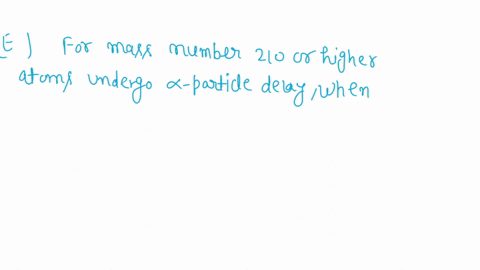 (E) For mass number 210 or higher
atoms undergo α-particle delay, when